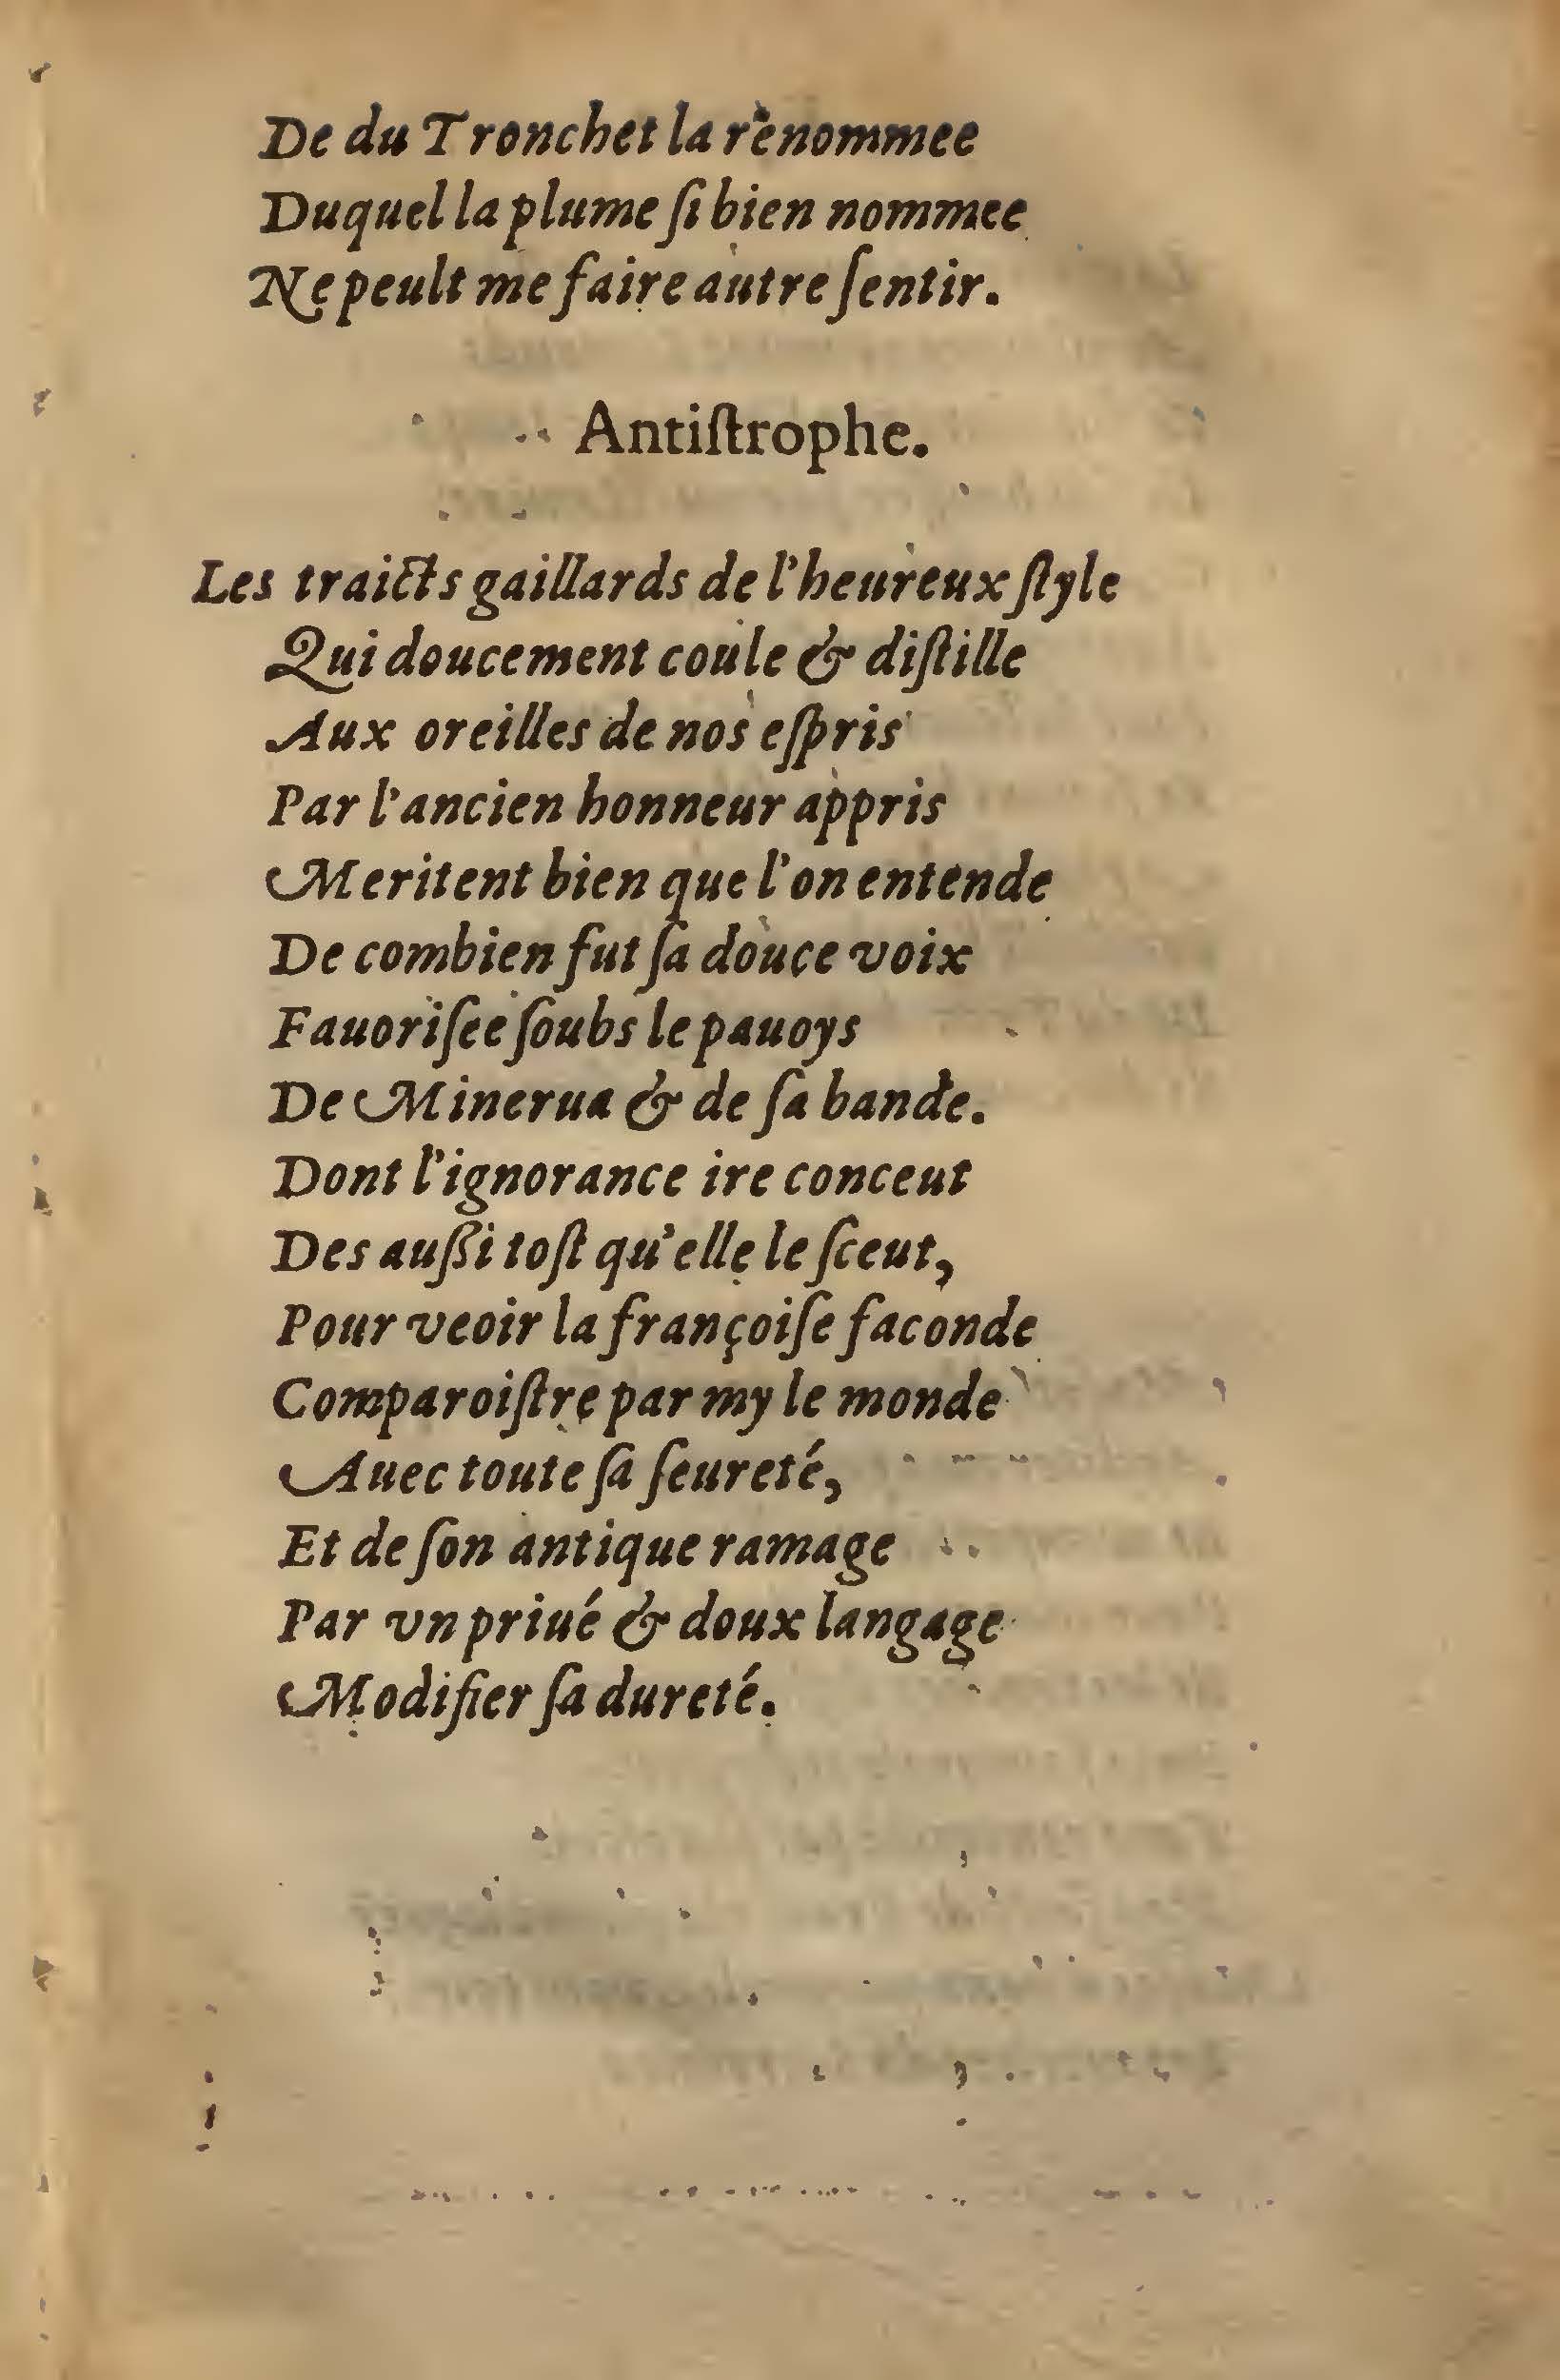 De du Tronchet la renommee
Duquel la plume ſi bien nommee
Ne peult me faire autre ſentir.
Antiſtrophe.
Les traicts gaillards de l'heureux ſtyle
Qui doucement coule & diſtille
Aux oreilles de nos eſpris
Par l'ancien honneur appris
Meritent bien que l'on entende
De combien fut ſa douce voix
Fauoriſee ſoubs le pauoys
De Minerua & de ſa bande.
Dont l'ignorance ire conceut
Des auſſi toſt qu'elle le ſceut,
Pour veoir la françoiſe faconde
Comparoiſtre par my le monde
Auec toute ſa ſeureté,
Et de ſon antique ramage
Par vn priué & doux langage
Modifier ſa dureté.